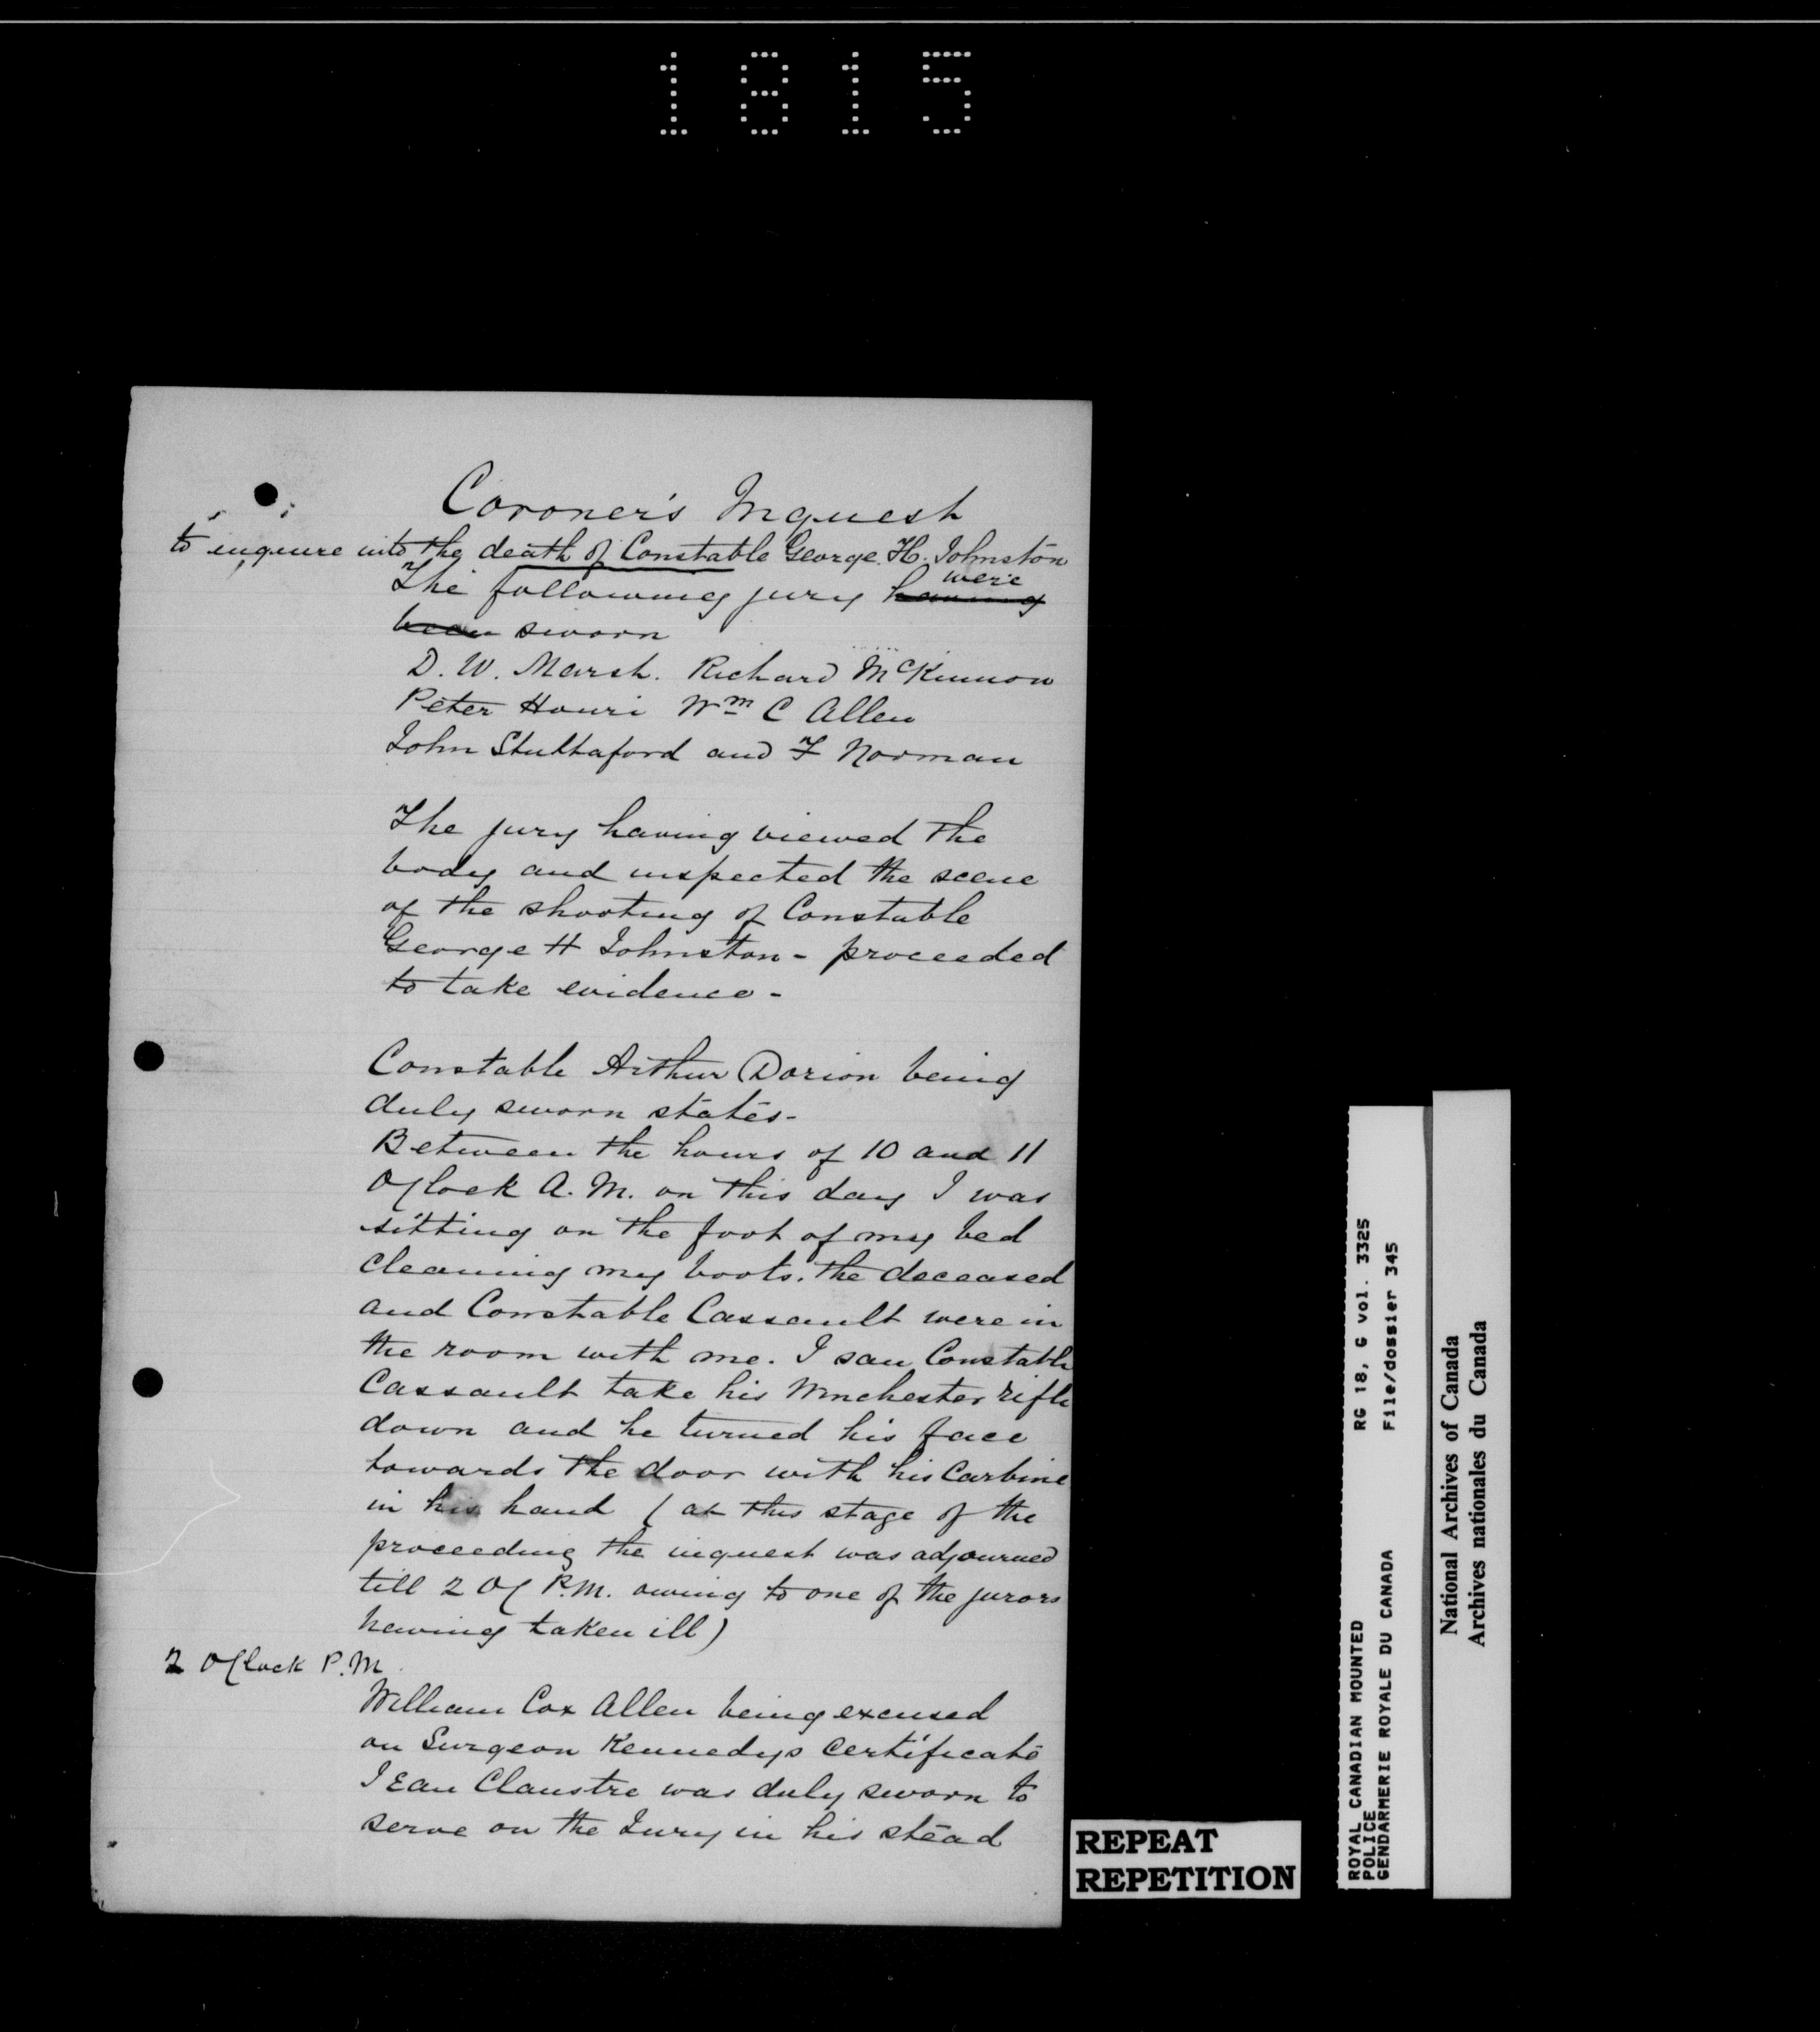 1815
Coroner's Inquest
to enquire into the death of Constable George. H. Johnston
were
The following jury having
been sworn
D. W. Marsh. Richard McKinnon
Peter Houri Wm C Allen
John Stuttaford and F Norman
The jury having viewed the
body and inspected the scene
of the shooting of Constable
George H Johnston - proceeded
to take evidence -
Constable Arthur Dorion being
duly sworn states -
Between the hours of 10 and 11
O'Clock A. M. on this day I was
sitting on the foot of my bed
cleaning my boots. the deceased
and Constable Cassault were in
the room with me. I saw Constable
Cassault take his Winchester rifle
down and he turned his face
towards the door with his Carbine
in his hand ( at this stage of the
proceeding the inquest was adjourned
till 2 OC P.M. owing to one of the jurors
having taken ill)
2 O'Clock P. M.
William Cox Allen being excused
on Surgeon Kennedys Certificate
Jean Claustre was duly sworn to
serve on the Jury in his stead
REPEAT
REPETITION
ROYAL CANADIAN MOUNTED POLICE
RG 18, G vol. 3325
GENDARMERIE ROYALE DU CANADA
File/dossier 345
National Archives of Canada
Archives nationales du Canada